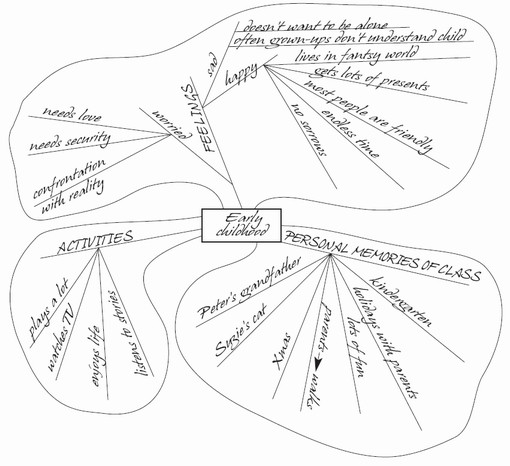 doesn't want to be alone
often grown-ups don't understand child
sad
lives in fantsy world
happy
gets lots of presents
most people are friendly
endless time
no sorrows
FEELINGS
worried
needs love
needs security
confrontation
with reality
Early
childhood
ACTIVITIES
plays a lot
watches TV
enjoys life
listens to stories
PERSONAL MEMORIES OF CLASS
Peter's grandfather
Suzie's cat
Xmas
parents - walks
lots of fun
holidays with parents
kindergarten